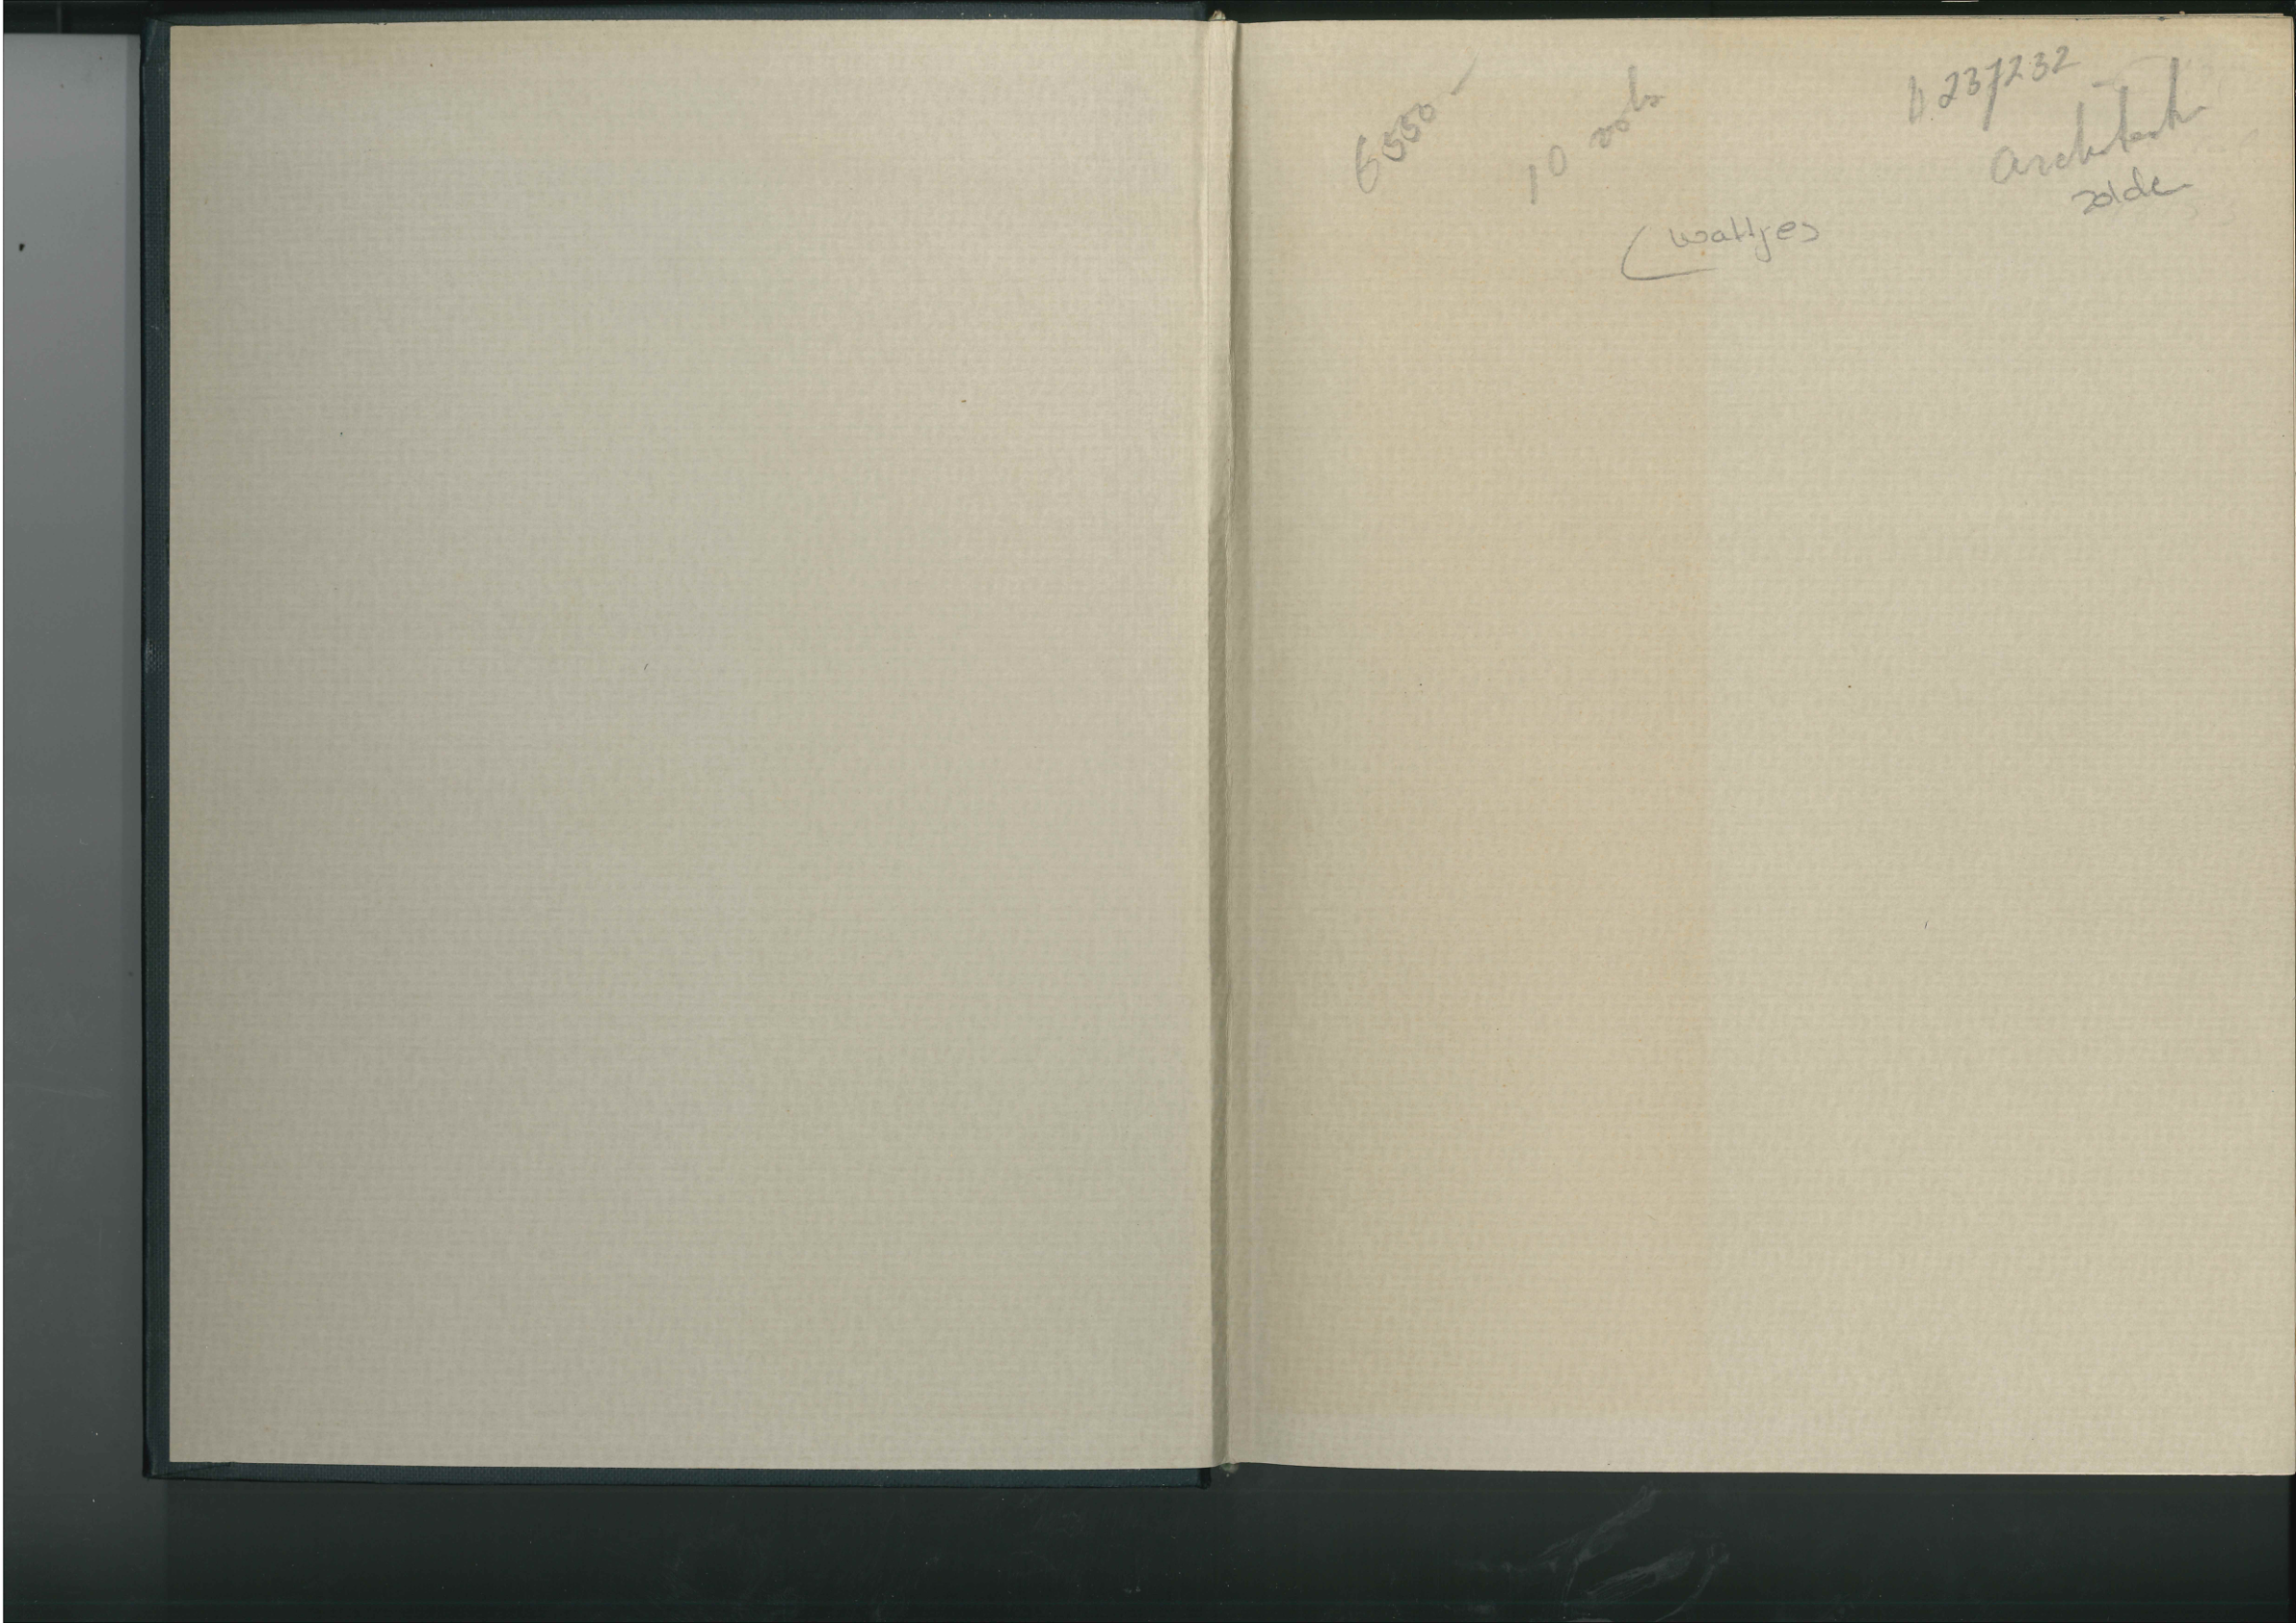 6550 -
10 vols
(wattjes
D 237232
Architect
zolder